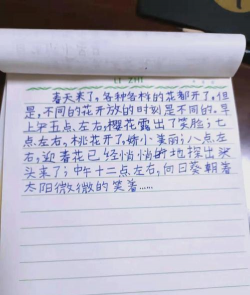 春天来了，各种各样的花都开了。但
是，不同的花开放的时刻是不同的。早
上五点左右，樱花露出了笑脸；七
点左右，桃花开了，娇小美丽；八点左
右，迎春花已经悄悄的地探出头
头来了；中午十二点左右，向日葵朝着
太阳微微的笑着……